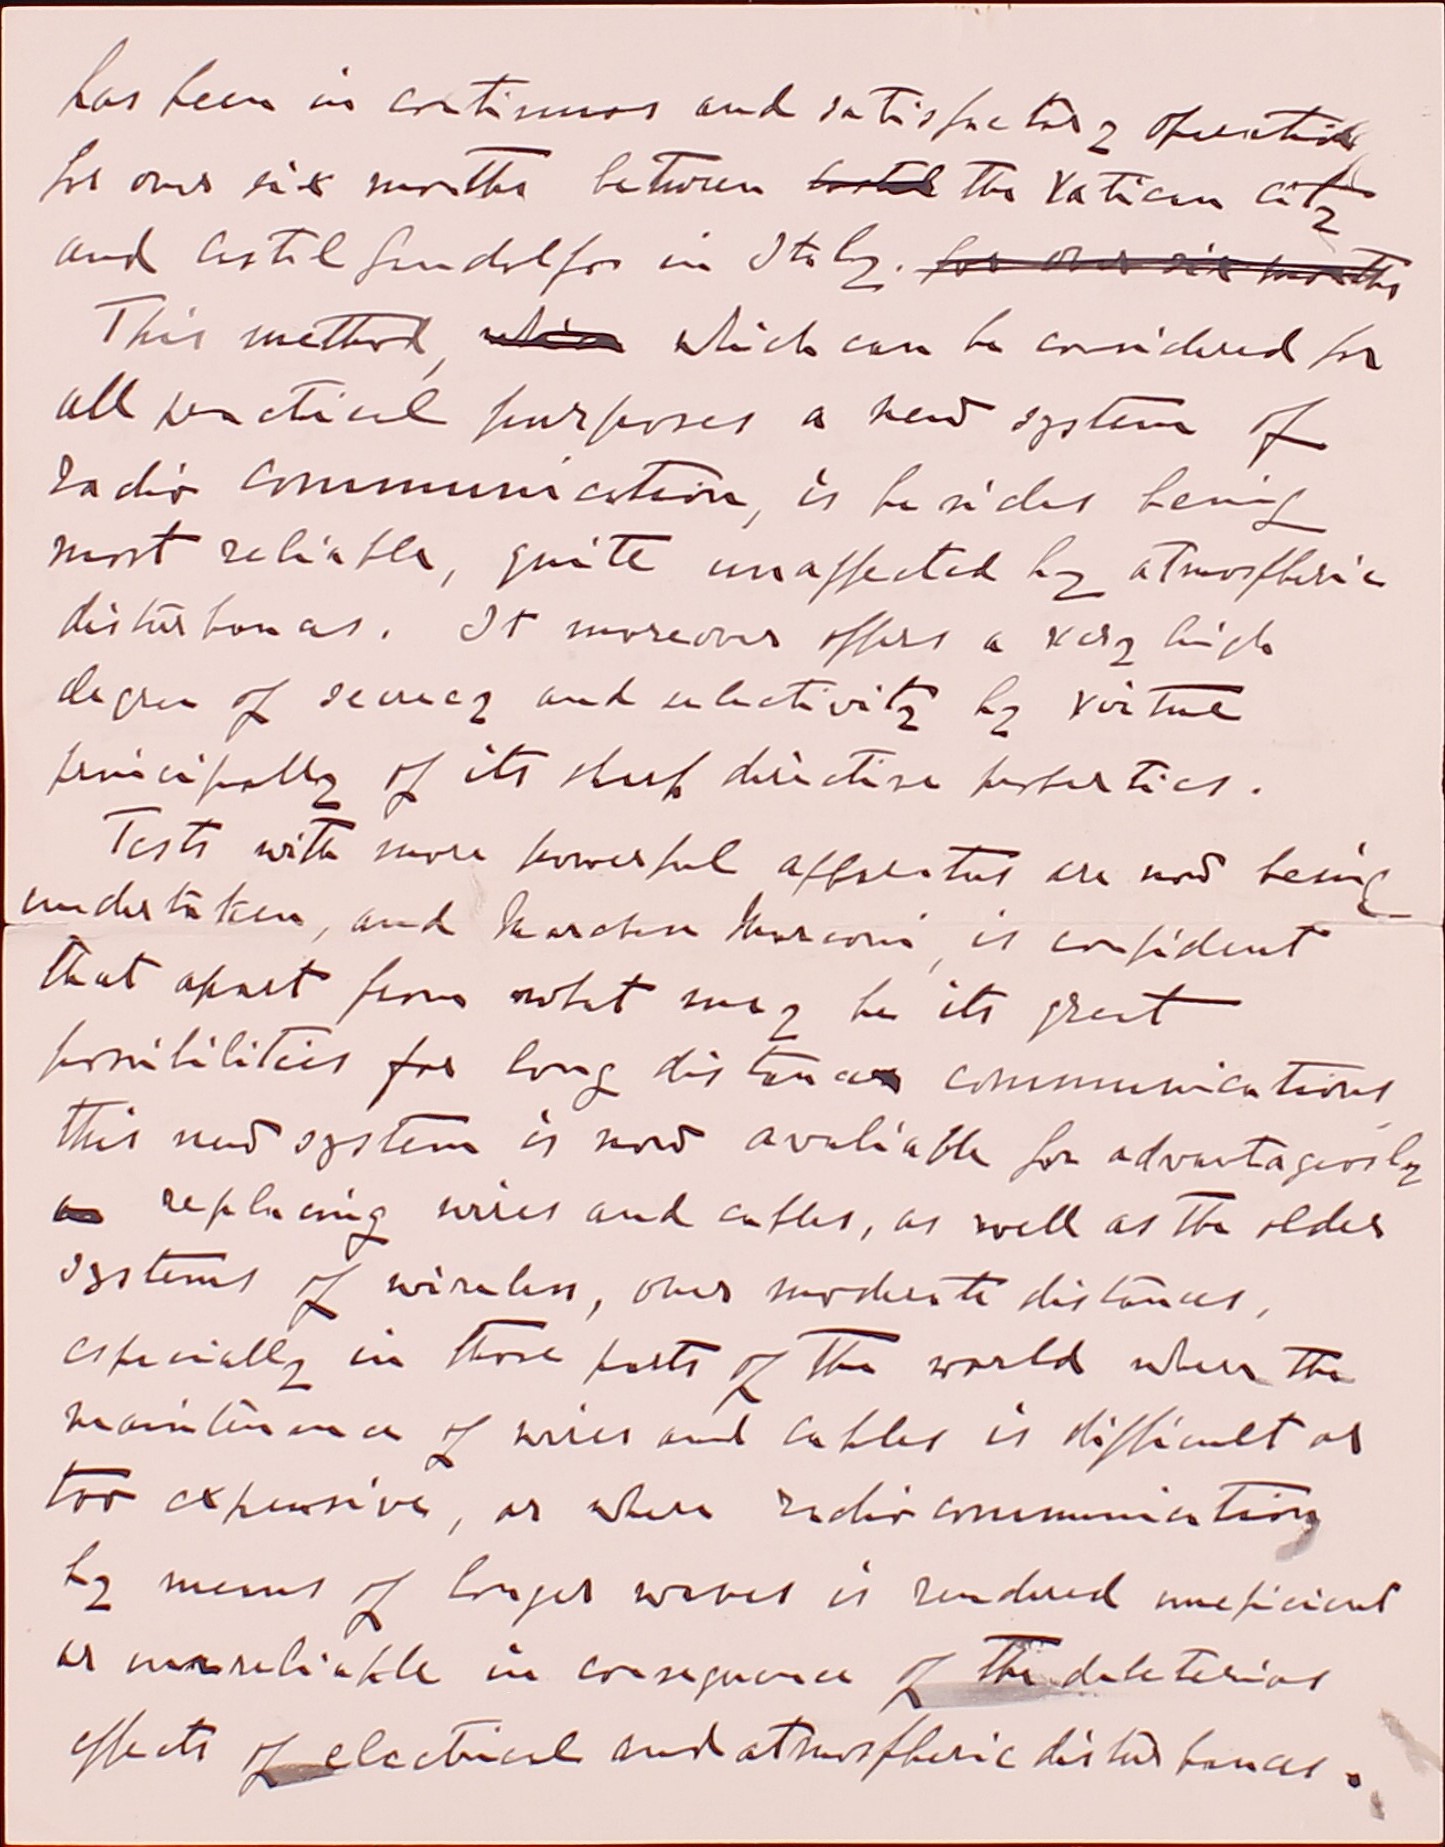 has been in continuous and satisfactory operation
for over six months between the Vatican City
and Castel Gandolfo in Italy. for over six months
This method, which can be considered for
all practical purposes a new system of
radio communication, is besides being
most reliable, quite unaffected by atmospheric
disturbances. It moreover offers a very high
degree of secrecy and selectivity by virtue
principally of its sharp directive properties.
Tests with more powerful apparatus are now being
undertaken, and Marchese Marconi, is confident
that apart from what may be its great
possibilities for long distance communications
this new system is now avaliable for advantageosly
replacing wires and cables, as well as the older
systems of wireless, over moderate distances,
especially in those parts of the world where the
maintenance of wires and cables is difficult or
too expensive, or where radio communication
by means of longer waves is rendered uneficient
or unreliable in consequence of the deleterios
effects of electrical and atmospheric disturbances.